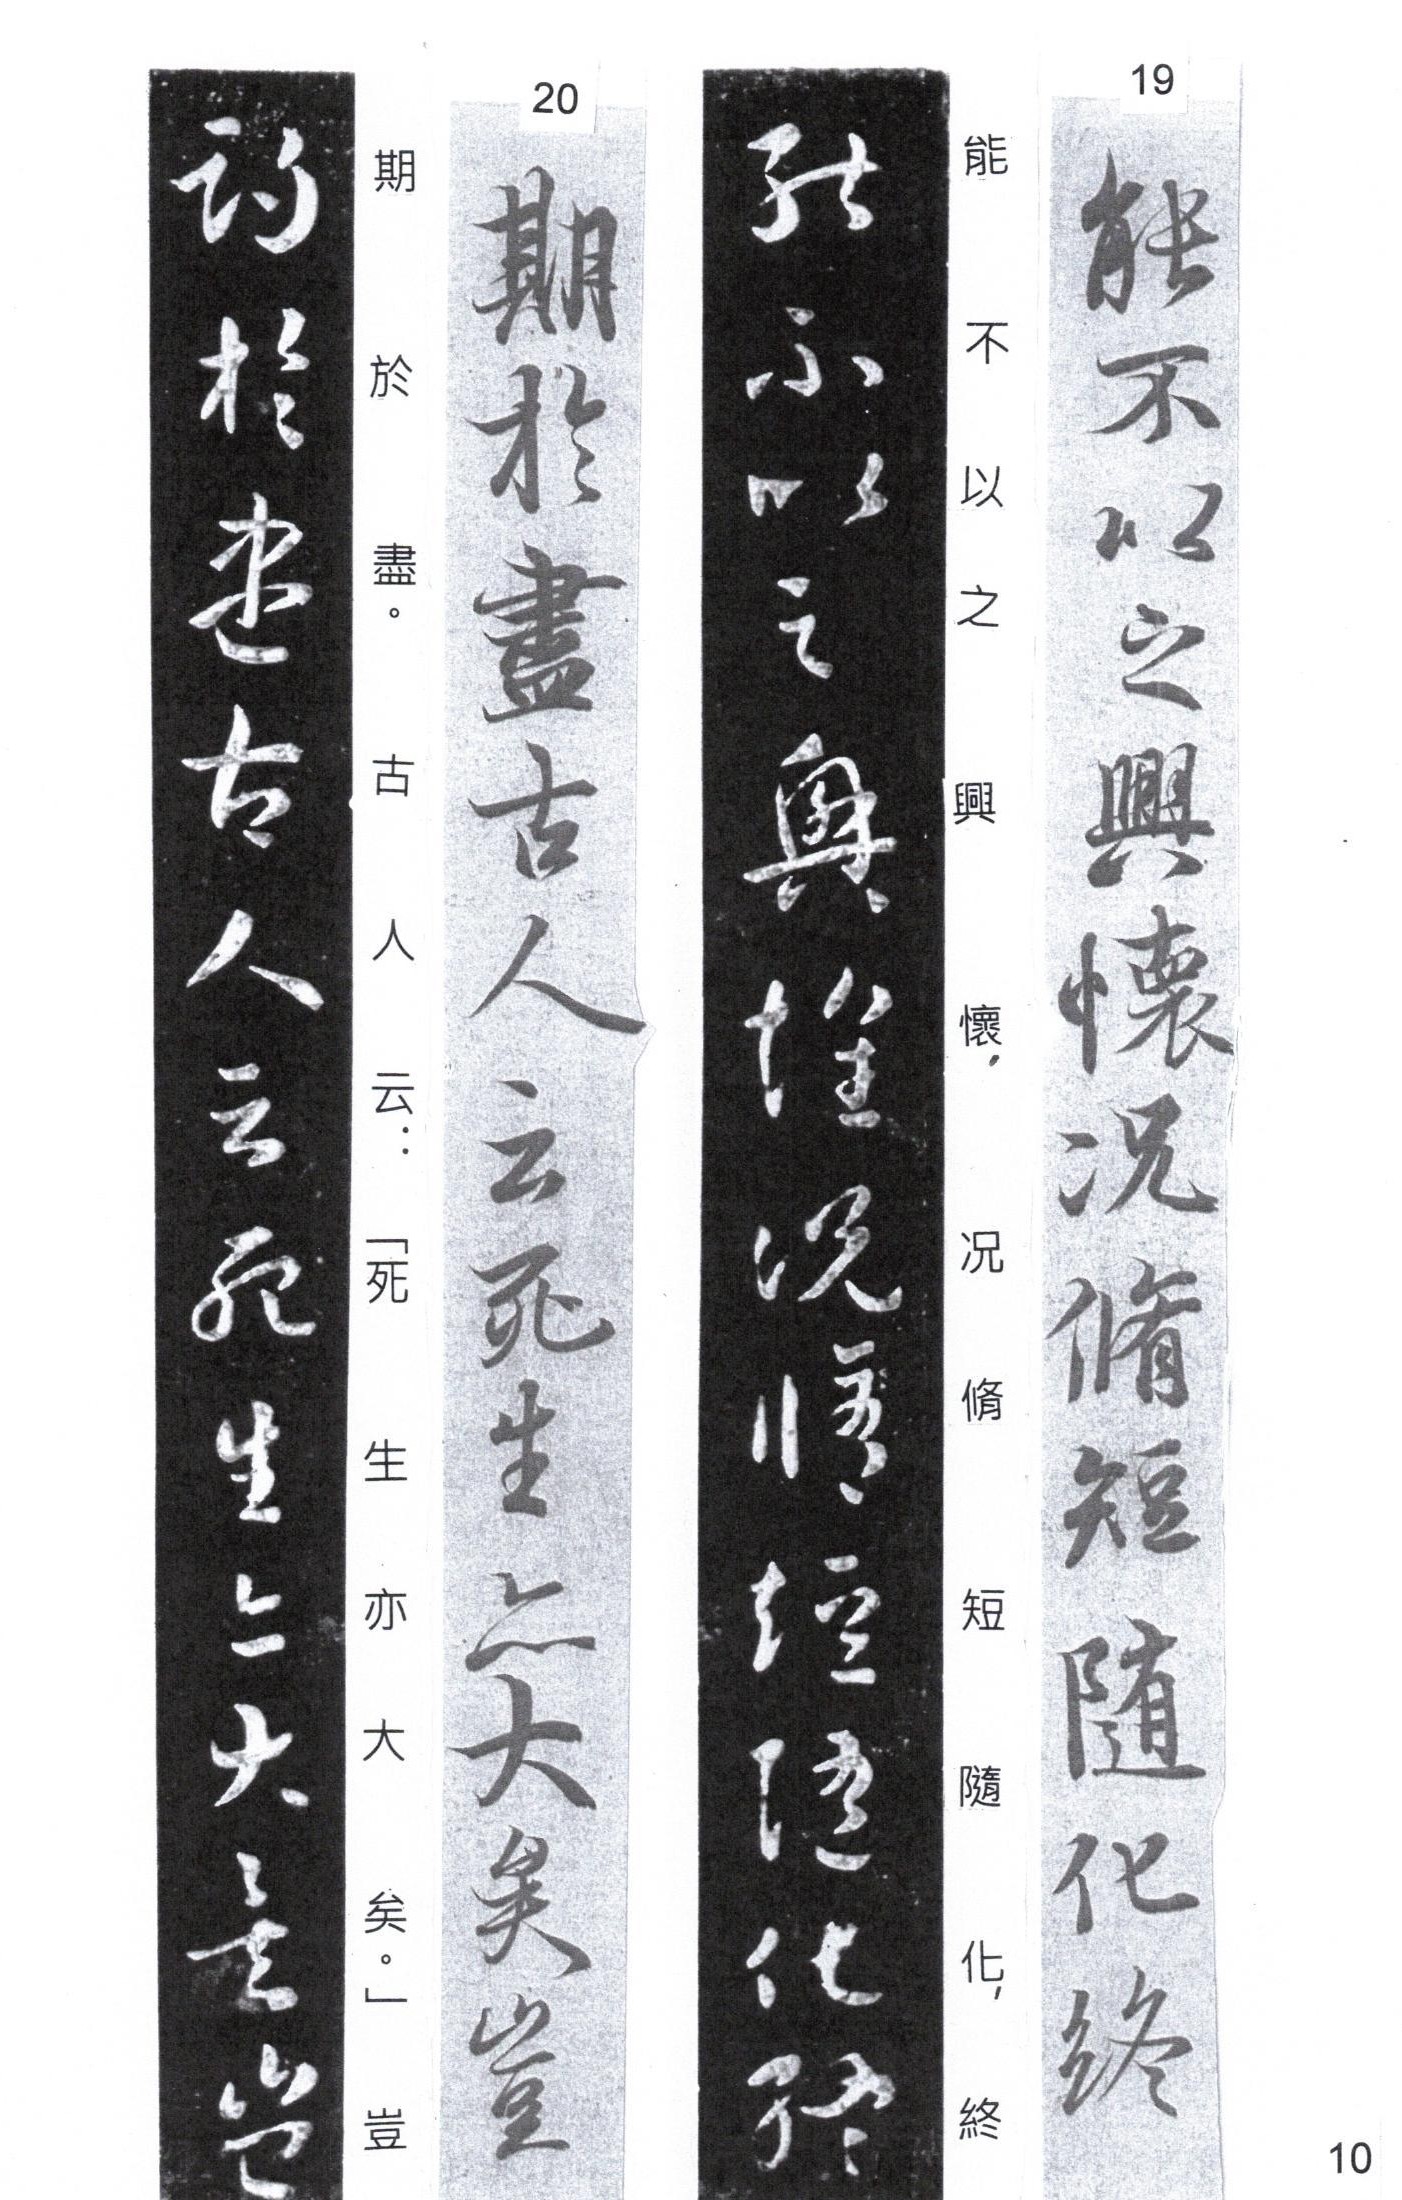 19
能不以之興懷况脩短隨化終
能不以之興懷，况脩短隨化，終
能不以之興懷况脩短隨化終
20
期於盡古人云死生亦大矣豈
期於盡。古人云：「死生亦大矣。」豈
期於盡古人云死生亦大矣豈
10